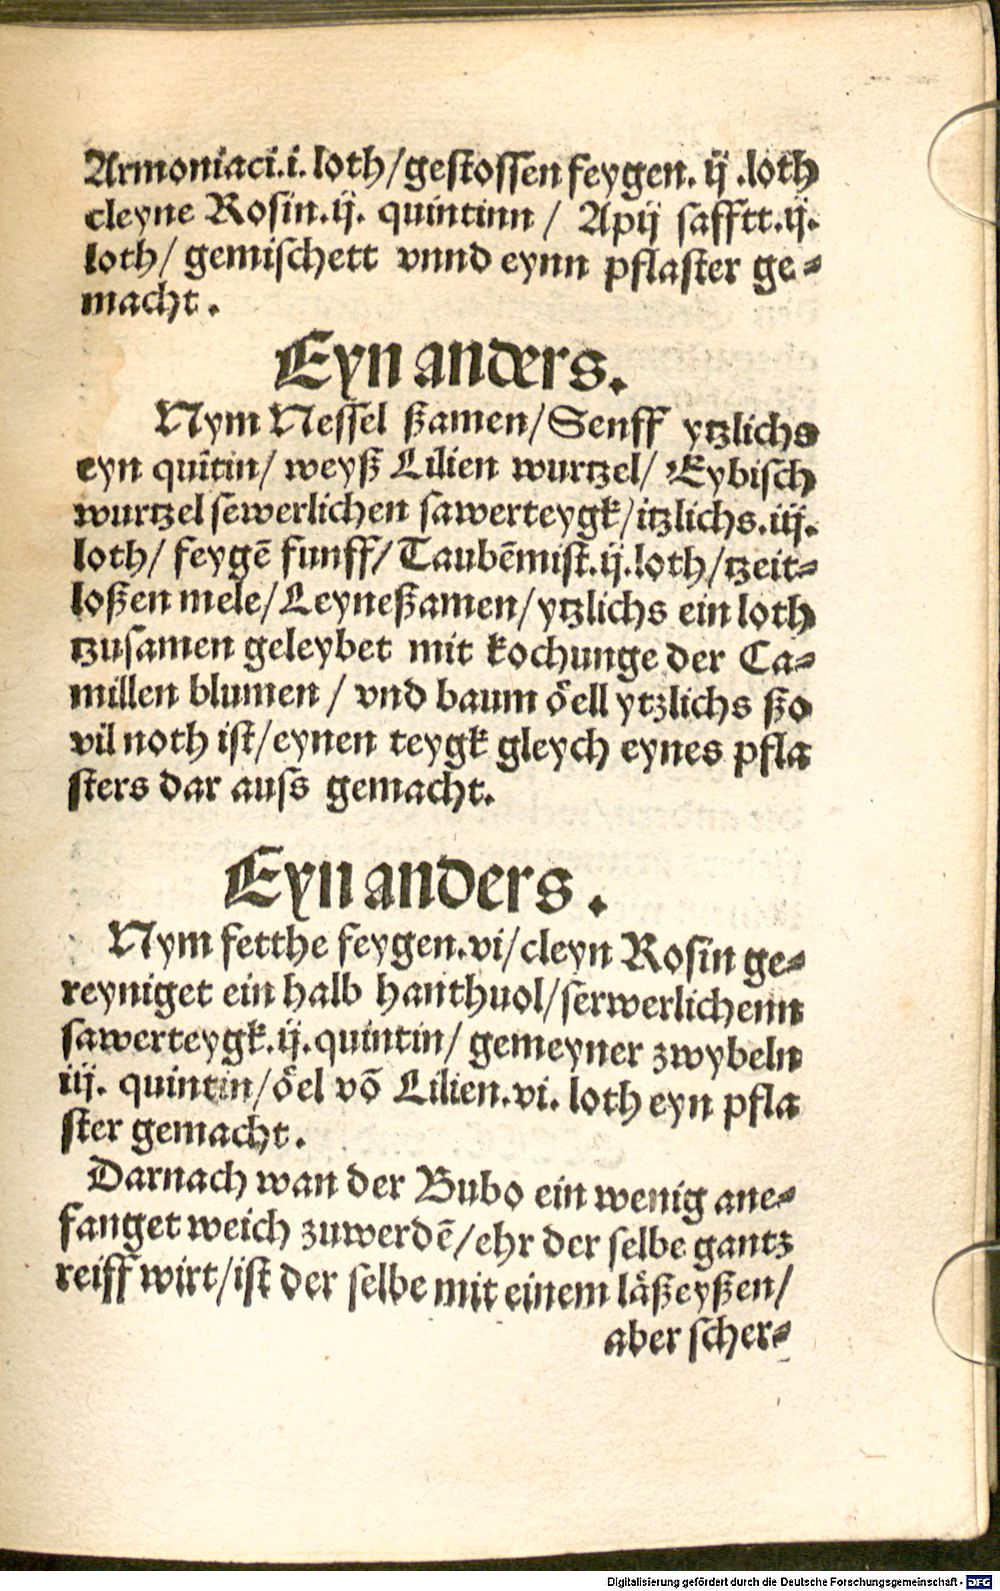 Armoniaci.i. loth/gestossen feygen. ij .loth
cleyne Rosin.ij. quintinn / Apij safftt.ij.
loth/ gemischett vnnd eynn pflaster ge⸗
macht.
Eyn anders.
Nym Nessel ßamen/Senff ytzlichs
eyn quītin/ weyß Lilien wurtzel/ Eybisch
wurtzel sewerlichen sawerteygk/itzlichs.iij.
loth/ feygē funff/Taubēmist.ij.loth/tzeit⸗
loßen mele/Leyneßamen/ytzlichs ein loth
tzusamen geleybet mit kochunge der Ca⸗
millen blumen / vnd baum oͤell ytzlichs ßo
vil noth ist/eynen teygk gleych eynes pfla
sters dar auss gemacht.
Eyn anders.
Nym fetthe feygen.vi/cleyn Rosin ge⸗
reyniget ein halb hanthuol/serwerlichenn
sawerteygk.ij.quintin/ gemeyner zwybeln
iij. quintin/oͤel vō Lilien.vi. loth eyn pfla
ster gemacht.
Darnach wan der Bubo ein wenig ane⸗
fanget weich zuwerdē/ehr der selbe gantz
reiff wirt/ist der selbe mit einem laͤßeyßen/
aber scher⸗
Digitalisierung gefördert durch die Deutsche Forschungsgemeinschaft - DFG